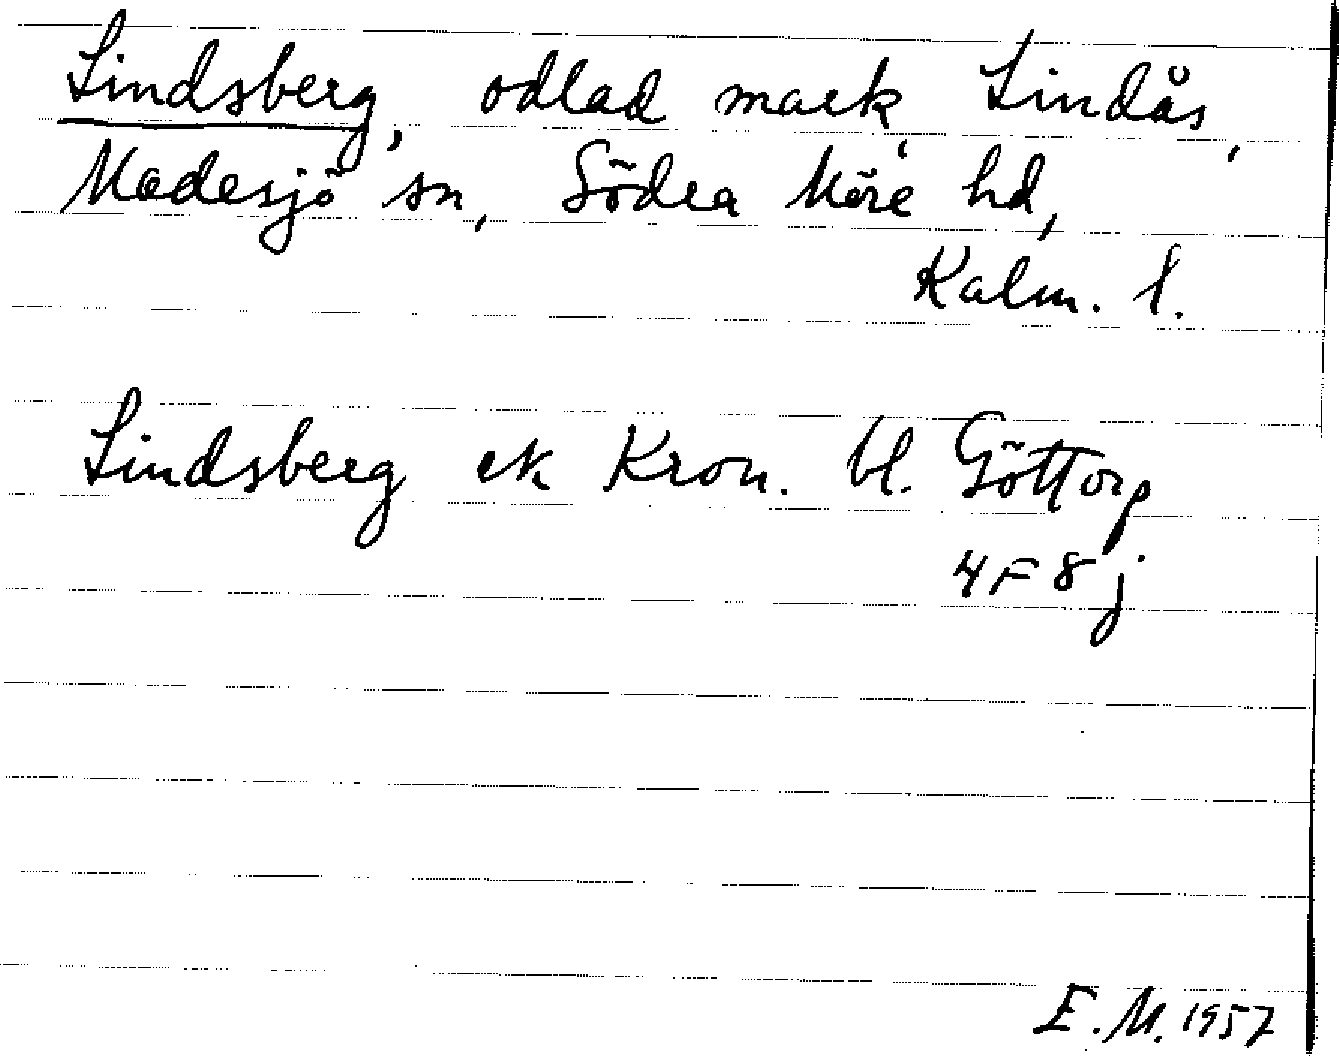 Lindsberg, odlad mark, Lindås,
Madesjö sn, Södra Möre hd,
Kalm. l.
Lindsberg ek Kron. bl. Göttorp
4F8j
E.M. 1957